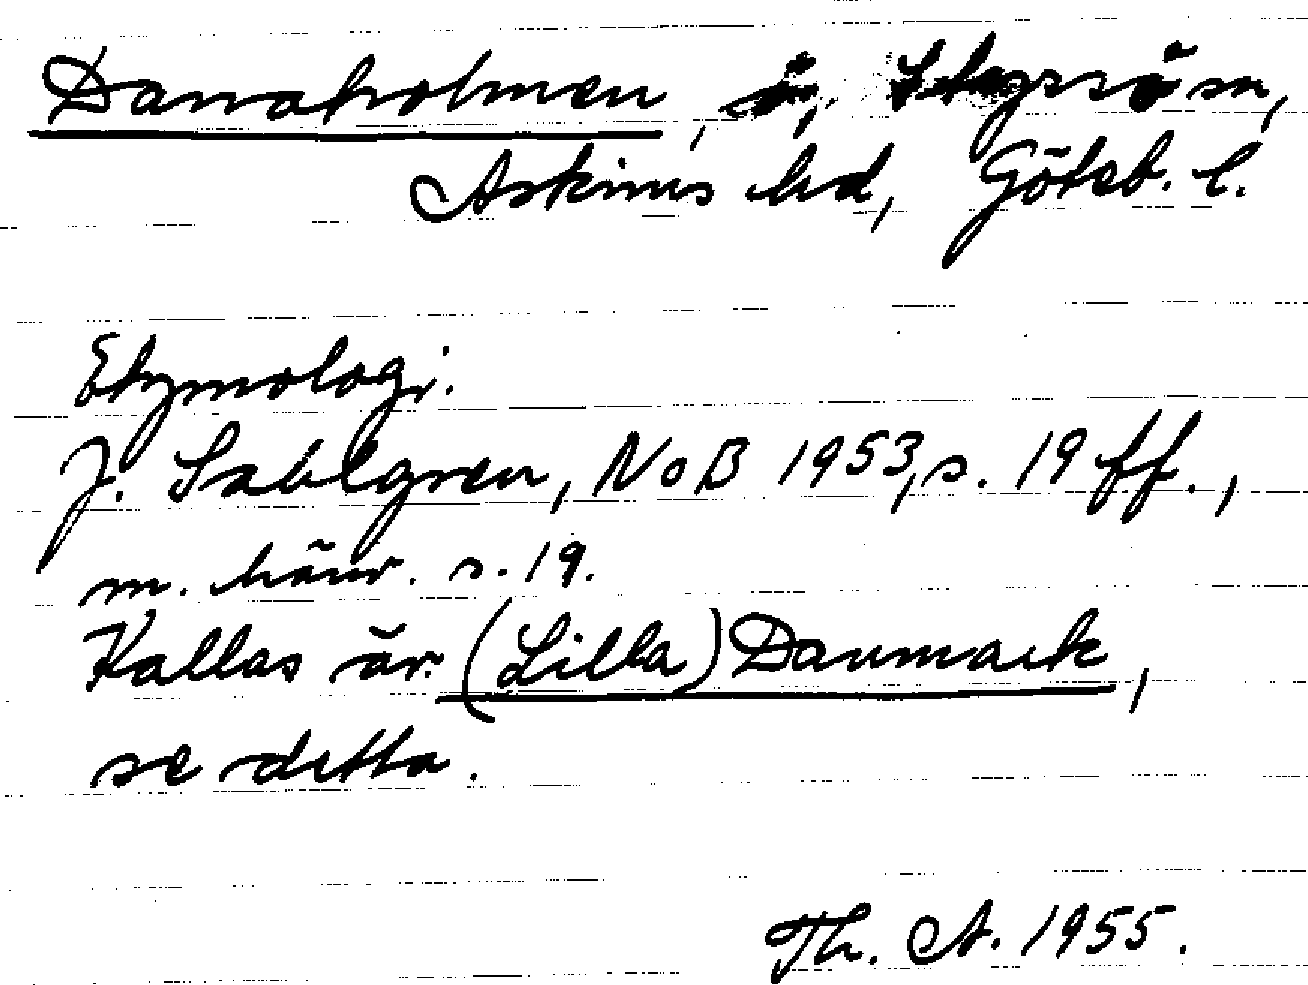 Danaholmen, ö, Styrsö sn,
Askims hd, Götеb. l.
Etymologi.
J. Sahlgren, NoB 1953, s. 19 ff.,
m. hänv. s. 19.
Kallas äv. (Lilla) Danmark,
se detta.
Th. A. 1955.